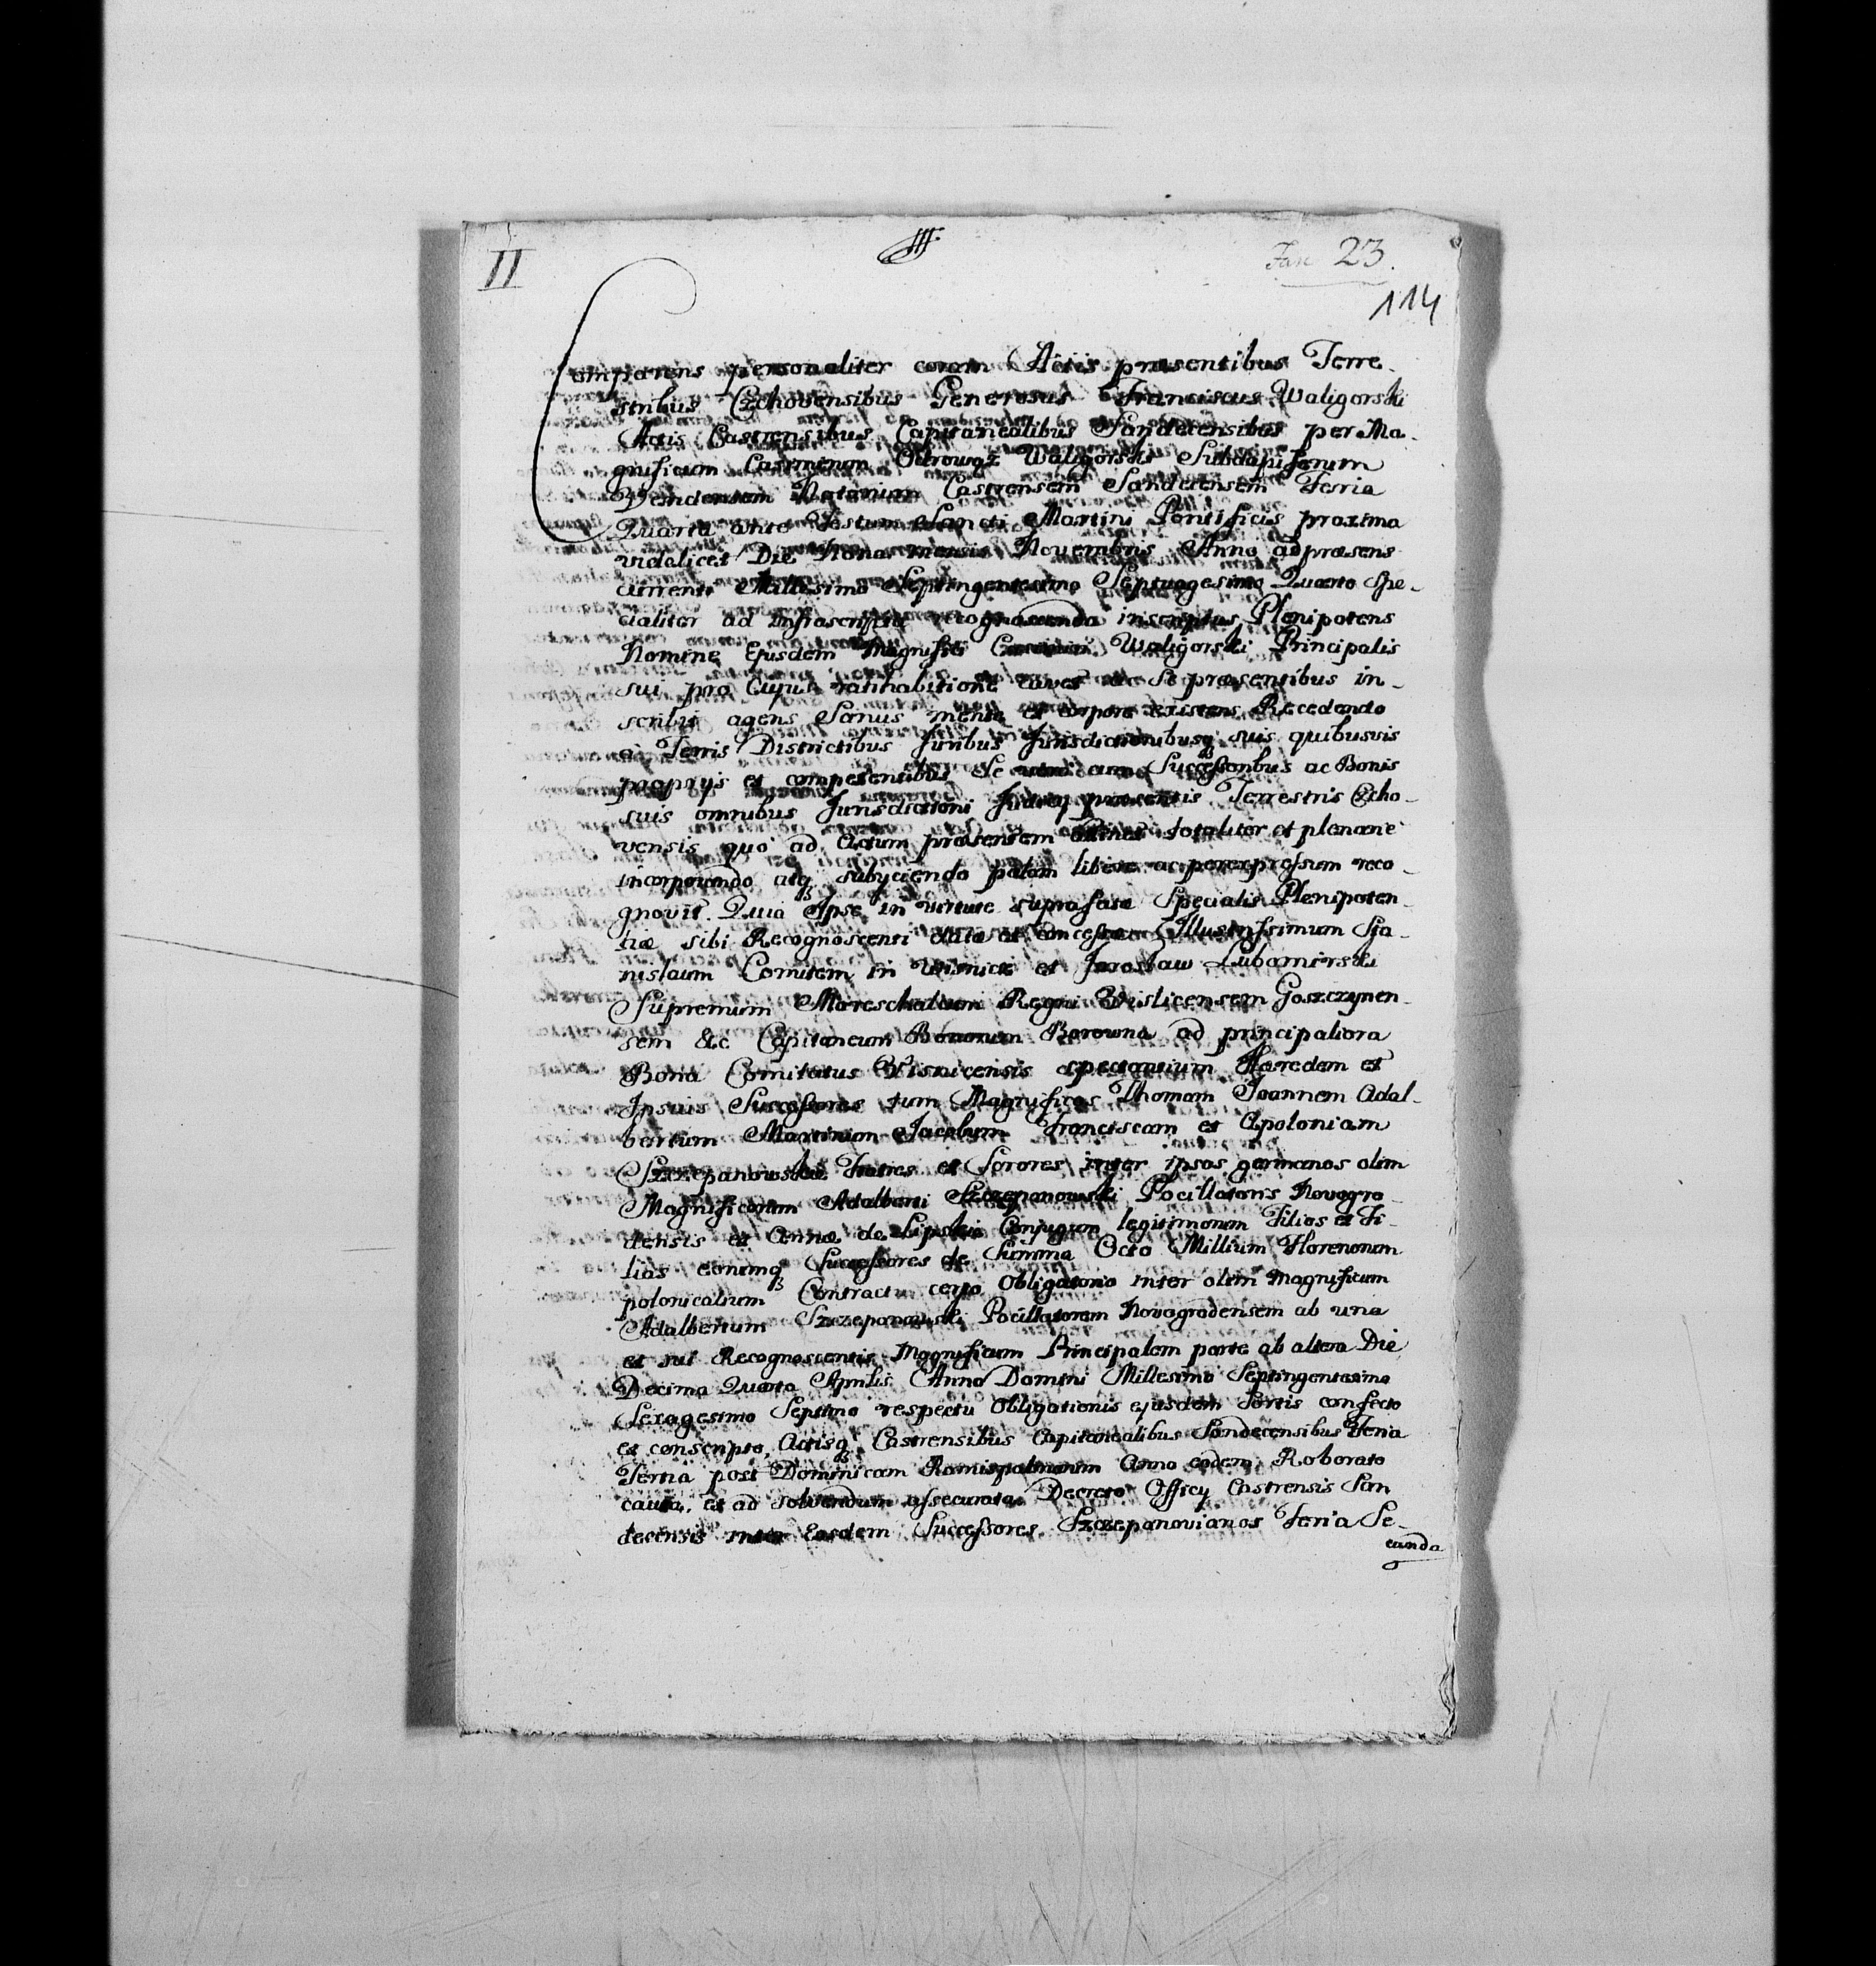 II
Fasc 23.
114
Comparens personaliter coram Actis præsentibus Terre-
stribus Czchoviensibus Generosus Franciscus Waligorski
Actis Castrensibus Capitanealibus Sandecensibus per Ma-
gnificum Casimirum Odrowąż Waligorski Subdapiferum
Vendensem Notarium Castrensem Sandecensem Feria
Quarta ante Festum Sancti Martini Pontificis proxima
videlicet Die Nona mensis Novembris Anno ad præsens
currenti Millesimo Septingentesimo Septuagesimo Quarto Spe-
cialiter ad infrascripta recognoscenda inscriptus Plenipotens
Nomine Ejusdem Magnifici Casimiri Waligorski Principalis
sui pro Cujus ratihabitione cavet ac se præsentibus in-
scribit agens Sanus mente et corpore existens Recedendo
a Terris Districtibus Juribus Jurisdictionibusq suis quibusvis
proprijs et competentibus Se cum Successoribus ac Bonis
suis omnibus Jurisdictioni præsentis Terrestris Czcho-
vensis quo ad Actum præsentem totaliter et plenarie
incorporando atq subijciendo palam libere ac per expressum reco-
gnovit. Quia Ipse in virtute suprafatæ Specialis Plenipoten-
tiæ sibi Recognoscenti datæ et concessæ Illustrissimum Sta-
nislaum Comitem in Wisnicz et Jarosław Lubomirski
Supremum Mareschalcum Regni Vislicensem Goszczynen-
sem &c Capitaneum Bonorum Borowna ad principaliora
Bona Comitatus Visnicensis spectantium Hæredem et
Ipsius Successores tum Magnificos Thomam Joannem Adal-
bertum Martinum Jacobum Franciscam et Apoloniam
Szczepanowskie Fratres et Sorores inter ipsos germanos olim
Magnificorum Adalberti Szczepanowski Pocillatoris Novogro-
densis et Annæ de Lipskie Conjugum legitimorum Filios et Fi-
lias eorumq Successores de Summa Octo Millium Florenorum
polonicalium Contractu Obligatorio inter olim Magnificum
Adalbertum Szczepanowski Pocillatorem Novogrodensem ab una
et sui Recognoscentis Magnificum Principalem parte ab altera Die
Decima Quarta Aprilis Anno Domini Millesimo Septingentesimo
Sexagesimo Septimo respectu Obligationis ejusdem Sortis confecto
et conscripto, Actisq Castrensibus Capitanealibus Sandecensibus Feria
Tertia post Dominicam Ramispalmarum Anno eodem Roborato
cauta, et ad solvendum assecurata Decreto Officij Castrensis San
decensis inter Eosdem Successores Szczepanovianos Feria Se-
cunda